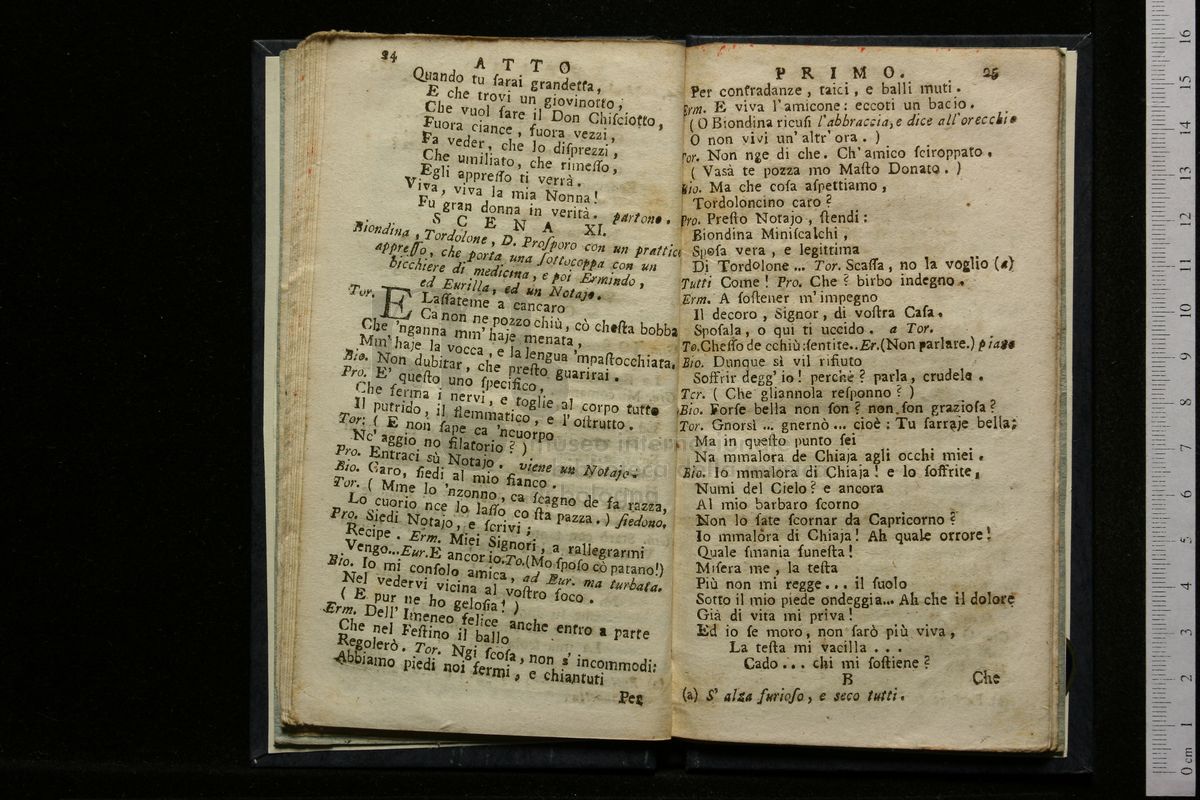 24
ATTO
Quando tu ſarai grandetta,
E che trovi un giovinotto,
Che vuol fare il Don Chiſciotto,
Fuora ciance, fuora vezzi,
Fa veder, che lo diſprezzi,
Che umiliato, che rimeſſo,
Egli appreſſo ti verrà.
Viva, viva la mia Nonna!
Fu gran donna in verità. partono.
SCENA XI.
Biondina, Tordolone, D. Proſporo con un prattico
appreſſo, che porta una ſottocoppa con un
bicchiere di medicina, e poi Ermindo,
ed Eurilla, ed un Notajo.
Tor. E Laſſateme a cancaro
Ca non ne pozzo chiù, cò cheſta bobba
Che 'nganna mm' haje menata,
Mm' haje la vocca, e la lengua 'mpaſtocchiata.
Bio. Non dubitar, che preſto guarirai.
Pro. E' queſto uno ſpecifico,
Che ferma i nervi, e toglie al corpo tutto
Il putrido, il flemmatico, e l'oſtrutto.
Tor. ( E non ſape ca 'ncuorpo
Nc' aggio no filatorio? )
Pro. Entraci sù Notajo. viene un Notajo.
Bio. Caro, ſiedi al mio fianco.
Tor. ( Mme lo 'nzonno, ca ſcagno de fa razza,
Lo cuorio nce lo laſſo co ſta pazza. ) ſiedono.
Pro. Siedi Notajo, e ſcrivi;
Recipe. Erm. Miei Signori, a rallegrarmi
Vengo...Eur.E ancor io.To.(Mo ſpoſo cò patano!)
Bio. Io mi conſolo amica, ad Eur. ma turbata.
Nel vedervi vicina al voſtro foco.
( E pur ne ho geloſia! )
Erm. Dell' Imeneo felice anche entro a parte
Che nel Feſtino il ballo
Regolerò. Tor. Ngi ſcoſa, non s' incommodi:
Abbiamo piedi noi fermi, e chiantuti
Per
PRIMO.
25
Per contradanze, taici, e balli muti.
Erm. E viva l'amicone: eccoti un bacio.
( O Biondina ricuſi l'abbraccia, e dice all'orecchio
O non vivi un' altr' ora. )
Tor. Non nge di che. Ch' amico ſciroppato.
( Vasà te pozza mo Maſto Donato. )
Bio. Ma che coſa aſpettiamo,
Tordoloncino caro?
Pro. Preſto Notajo, ſtendi:
Biondina Miniſcalchi,
Spoſa vera, e legittima
Di Tordolone ... Tor. Scaſſa, no la voglio (a)
Tutti Come! Pro. Che? birbo indegno.
Erm. A ſoſtener m'impegno
Il decoro, Signor, di voſtra Caſa.
Spoſala, o qui ti uccido. a Tor.
To.Cheſſo de cchiù:ſentite..Er.(Non parlare.) piano
Bio. Dunque sì vil rifiuto
Soffrir degg' io! perchè? parla, crudele.
Tor. ( Che gliannola reſponno? )
Bio. Forſe bella non ſon? non ſon grazioſa?
Tor. Gnorsì ... gnernò ... cioè: Tu ſarraje bella;
Ma in queſto punto ſei
Na mmalora de Chiaja agli occhi miei.
Bio. Io mmalora di Chiaja! e lo ſoffrite,
Numi del Cielo? e ancora
Al mio barbaro ſcorno
Non lo fate ſcornar da Capricorno?
Io mmalora di Chiaja! Ah quale orrore!
Quale ſmania funeſta!
Miſera me, la teſta
Più non mi regge... il ſuolo
Sotto il mio piede ondeggia... Ah che il dolore
Già di vita mi priva!
Ed io ſe moro, non ſarò più viva,
La teſta mi vacilla ...
Cado ... chi mi ſoſtiene?
B
Che
(a) S' alza furioſo, e ſeco tutti.